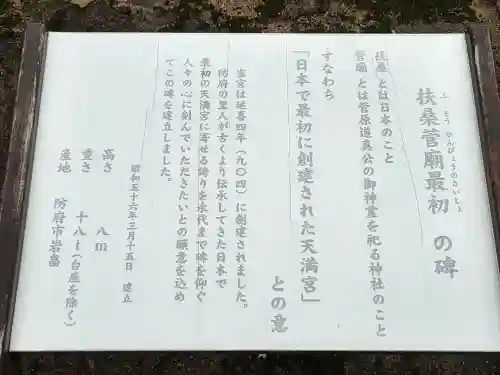 扶桑菅廟最初の碑
ふそうかんびょうさいしょ
扶桑とは日本のこと
菅廟とは菅原道真公の御神霊を祀る神社のこと
すなわち
「日本で最初に創建された天満宮」
との意
当宮は延喜四年（九〇四）に創建されました。
防府の里人が古くより伝承してきた日本で
最初の天満宮に寄せる誇りを永代まで碑を仰ぐ
人々の心に刻んでいただきたいとの願意を込め
てこの碑を建立しました。
昭和五十六年三月十五日 建立
高さ 八m
重さ 十八t（台座を除く）
産地 防府市岩畠